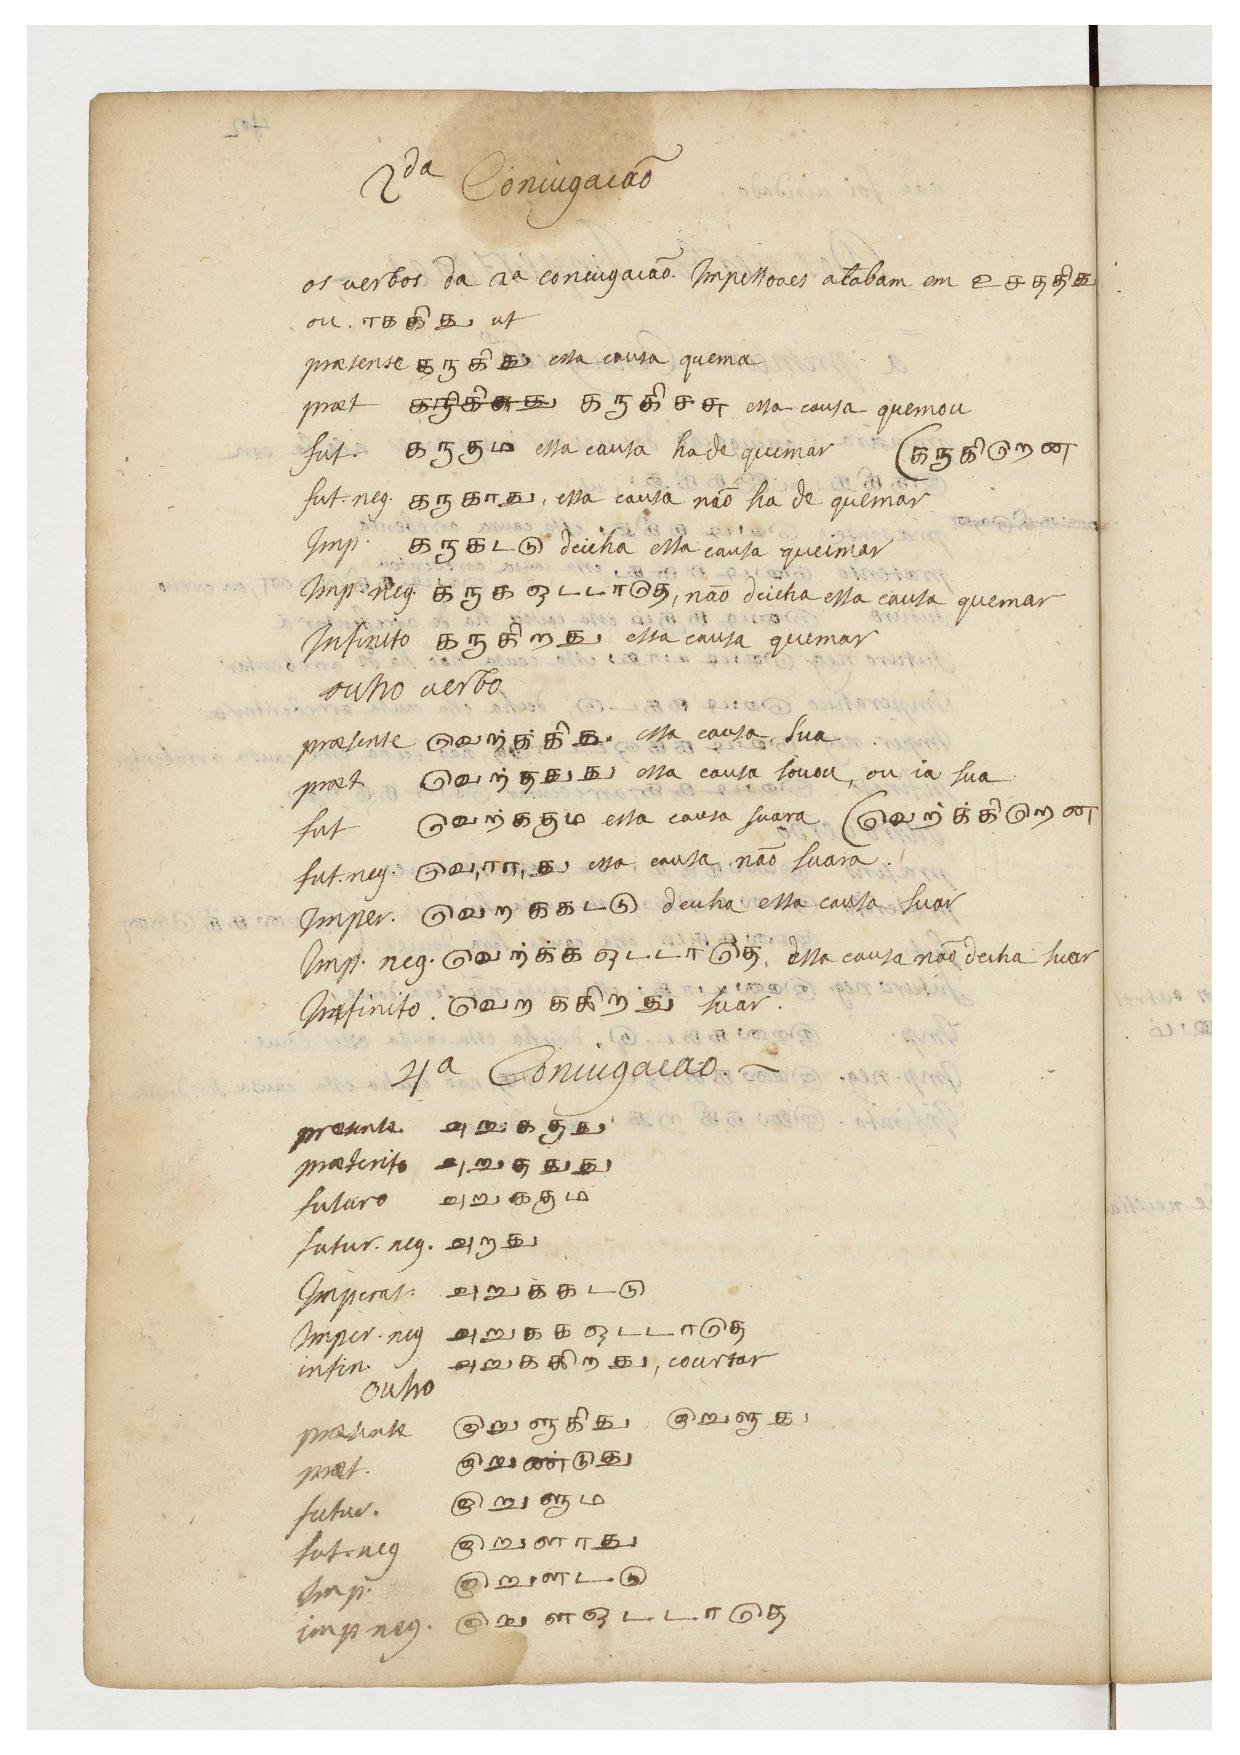 2da Coniugacaõ
os verbos da 2a coniugacaõ. Impessoaes acabam em உசததிது
ou . ாககிது ut
præsense கநகிது essa causa quema
præt கநகிசசு essa causa quemou
fut. கநதும essa causa ha de queimar (கநகிறென
fut. neg. கநகாது, essa causa naõ ha de quemar
Imp. கநகடடு deicha essa causa queimar
Imp. neg. கநக ஒடடாதெ, naõ deicha essa causa quemar
Infinito கநகிறது essa causa quemar
outro verbo
præsente வெர்க்கிது. essa causa sua
præt. வெர்தது essa causa souou, ou ia sua
fut வெர்ககும essa causa suara (வெர்க்கிறென
fut. neg. வெ,ரா,து essa causa naõ suara.
Imper. வெறககடடு deicha essa causa suar
Imp. neg. வெர்க்க ஒடடாதெ, essa causa naõ deicha suar
Infinito . வெறககிறது suar.
4a Coniugacao.
presente. அறுகுது
præterito அறுதது
futuro அறுகும
futur. neg. அறது
Imperat. அறுக்கடடு
Imper. neg அறுகக ஒடடாதெ
infin. அறுக்கிறது, courtar
outro
præsente உறுளுகிது உறுளுது
præt. உறுண்டுது
futur. உறுளும
fut. neg உறுளாது
Imp. உறுளடடு
imp neg. உறுள ஒடடாதெ